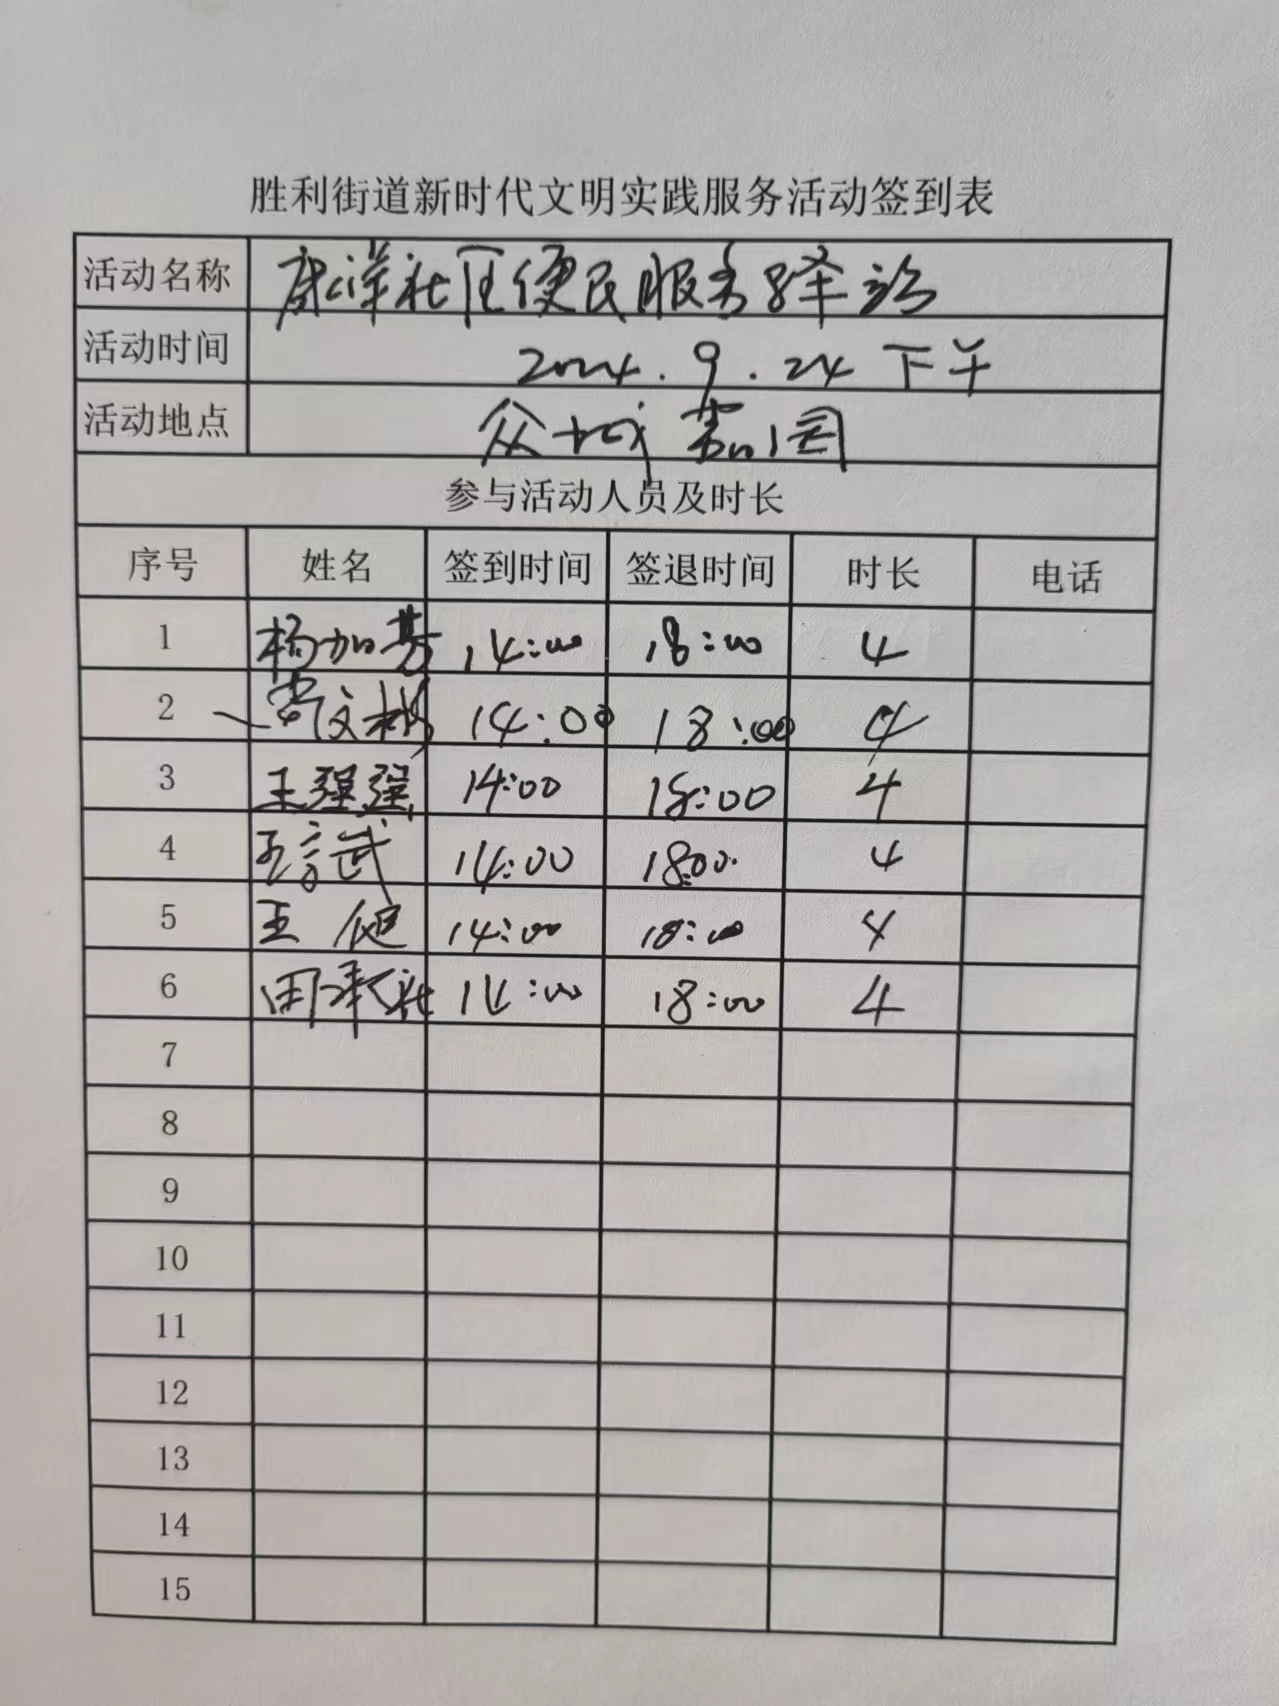 胜利街道新时代文明实践服务活动签到表
活动名称 康洋社区便民服务驿站
活动时间 2024.9.24 下午
活动地点 众城
参与活动人员及时长
序号 姓名 签到时间 签退时间 时长 电话
1 杨加芳 14:00 18:00 4
2 文 14:00 18:00 4
3 王强强 14:00 18:00 4
4 武 14:00 18:00 4
5 王健 14:00 18:00 4
6 田承社 14:00 18:00 4
7
8
9
10
11
12
13
14
15